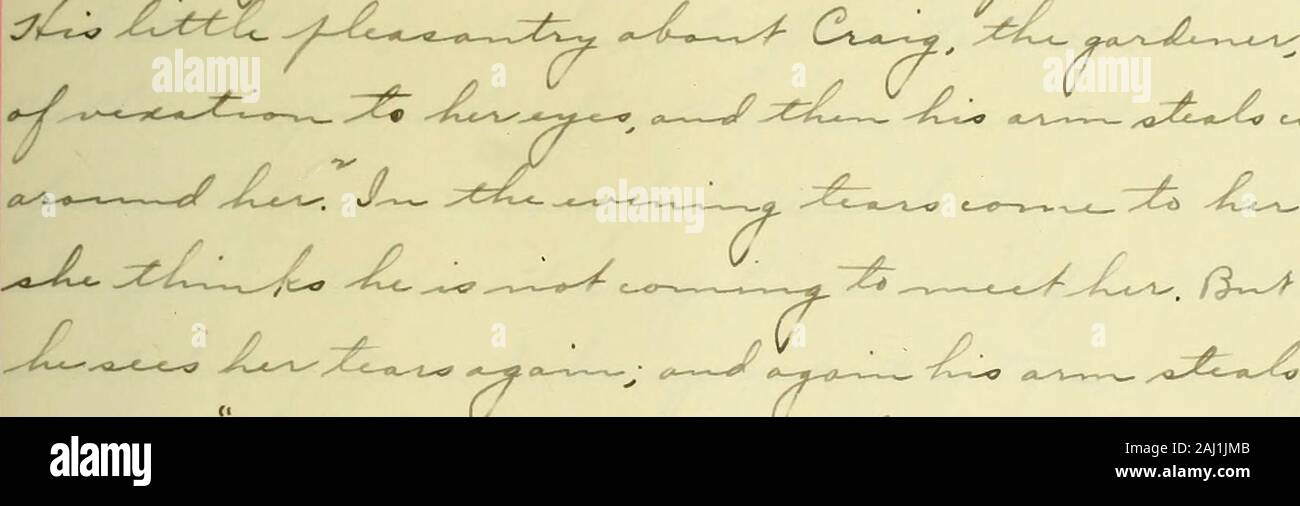 His little pleasantry about Craig, the gardener,
of vexation to her eyes, and then his arm steals
around her." In the evening tears come to her
she thinks he is not coming to meet her. But
he sees her tears again; and again his arm steals
"
alamy
Image ID: 2AJ1JMB
www.alamy.com